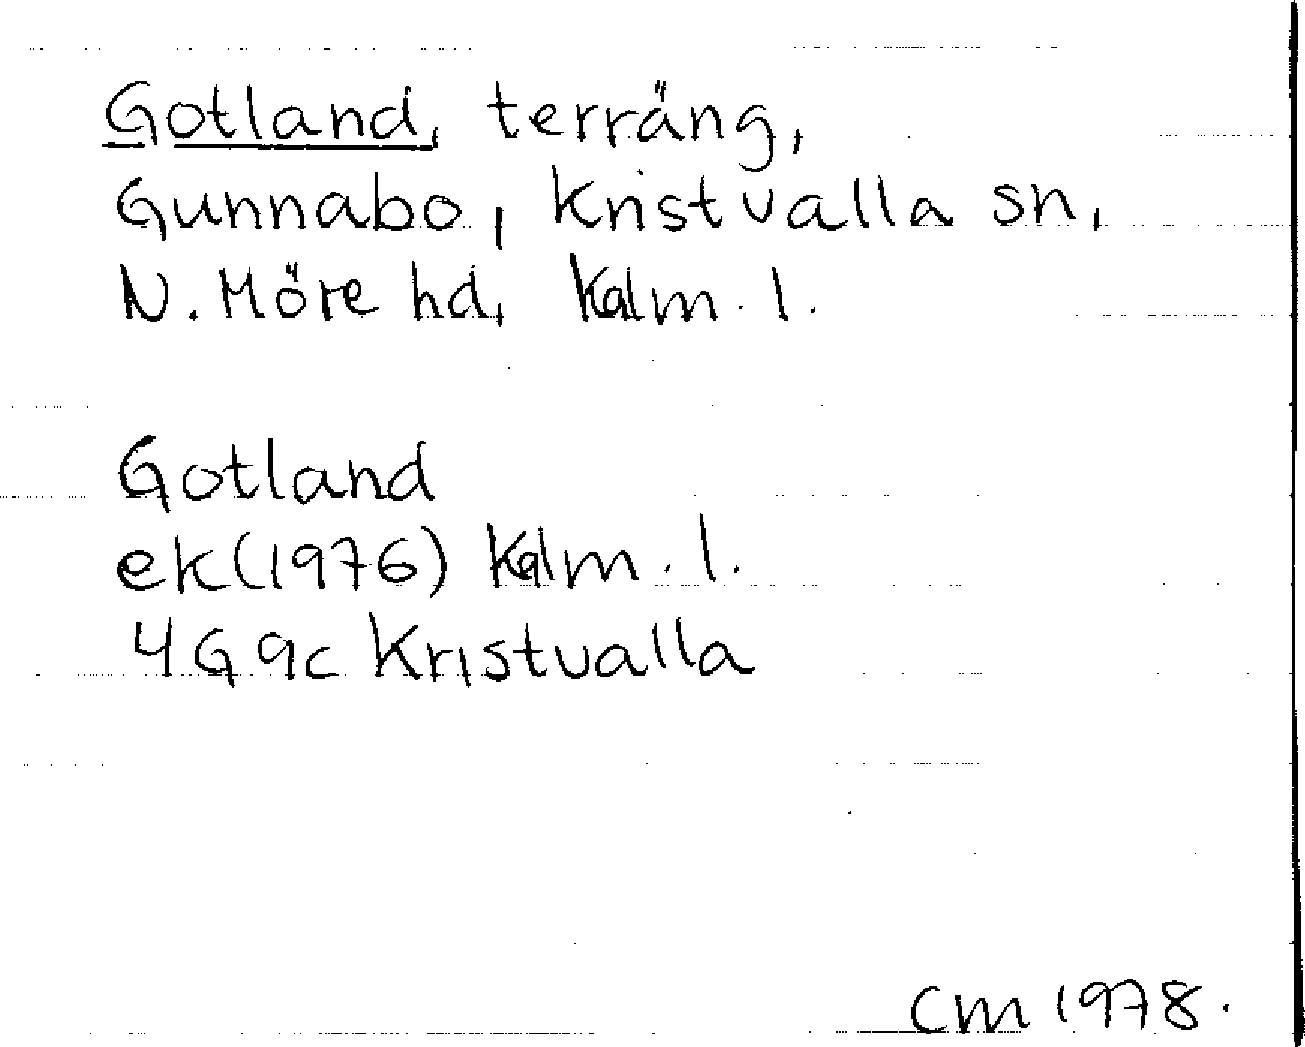 Gotland, terräng,
Gunnabo, Kristvalla sn,
N. Möre hd, Kalm. l.
Gotland
ek(1976) Kalm. l.
4G 9c Kristvalla
CM 1978.